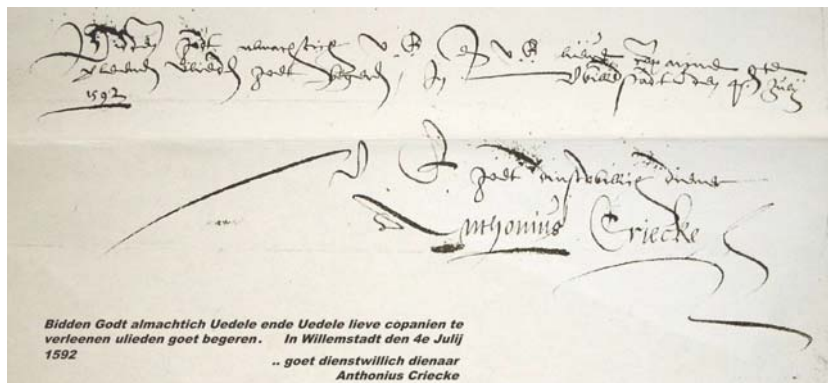 Bidden godt almachtich V. E. V. E. lieve copanie te
verleenen Ulieden godt begeren, In Willemstadt den 4en Julij
1592
V. E. goet dienstwillich dienaer
Anthonius Criecke
Bidden Godt almachtich Uedele ende Uedele lieve copanien te
verleenen ulieden goet begeren. In Willemstadt den 4e Julij
1592
.. goet dienstwillich dienaar
Anthonius Criecke